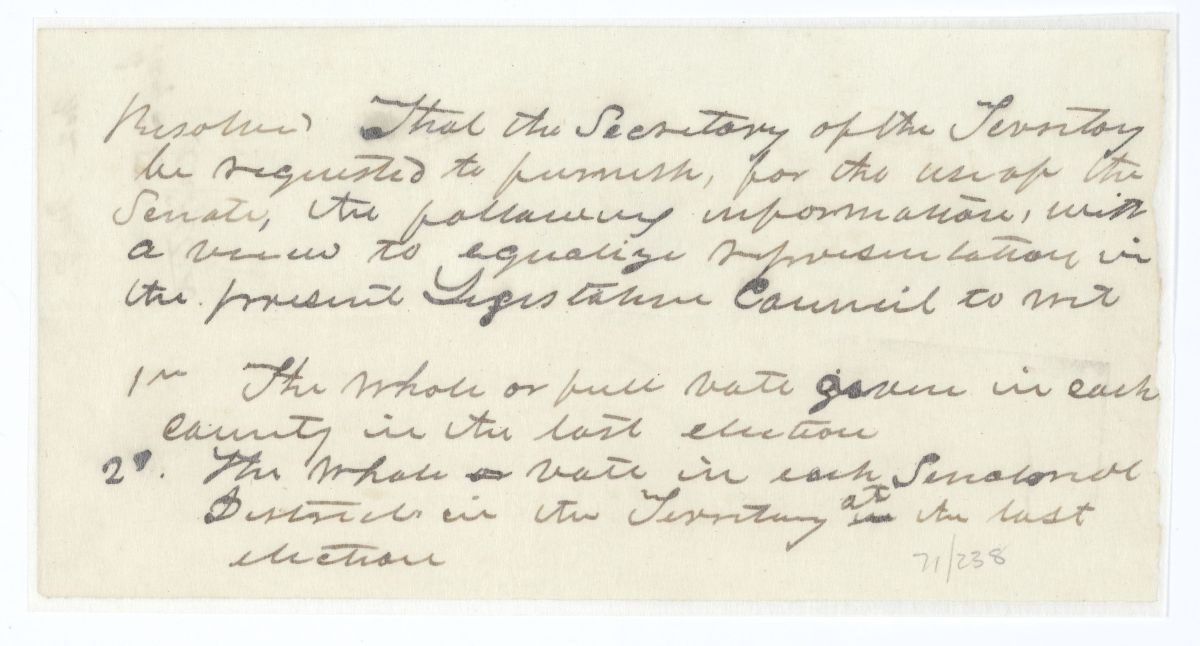 Resolved That the Secretary of the Territory
be requested to furnish, for the use of the
Senate, the following information, with
a view to equalize representation in
the present Legislative Council to wit
1st The whole or full vote given in each
County in the last election
2d. The whole vote in each Senatorial
District in the Territory at the last
election
71/238